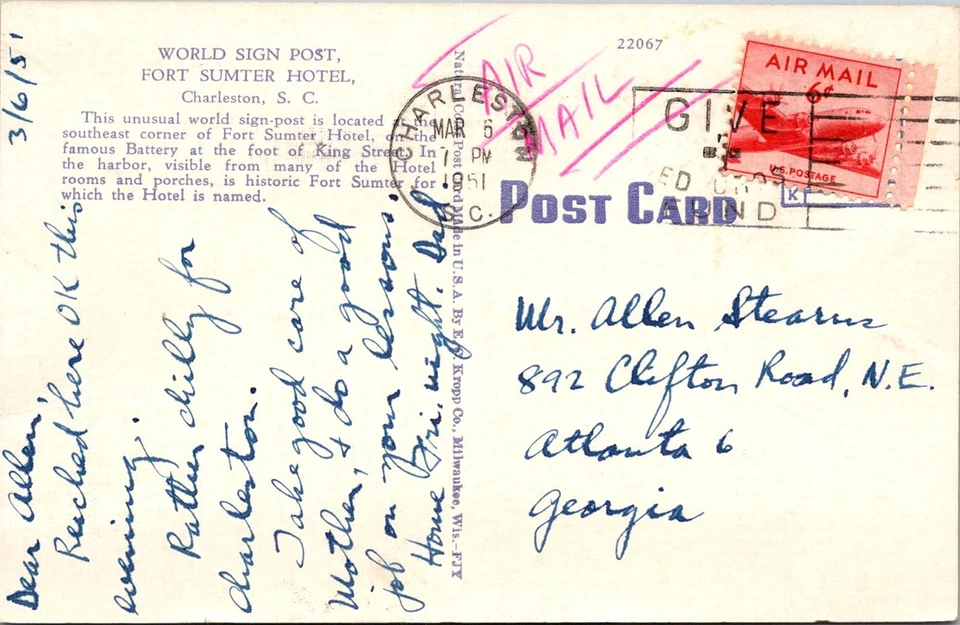 3/6/51
WORLD SIGN POST,
FORT SUMTER HOTEL,
Charleston, S. C.
This unusual world sign-post is located the
southeast corner of Fort Sumter Hotel, on the
famous Battery at the foot of King Street. In
the harbor, visible from many of the Hotel
rooms and porches, is historic Fort Sumter for
which the Hotel is named.
Dear Allen,
Reached here OK this
evening.
Rather chilly for
Charleston.
Take good care of
Mother, & do a good
job on your lessons.
Home Fri. night. Dad.
Natural Post Card Made in U.S.A. By E. C. Kropp Co., Milwaukee, Wis.—FJY
AIR
MAIL
22067
CHARLESTON
MAR 6
7 PM
1951
S.C.
GIVE
RED CROSS
FUND
AIR MAIL
6¢
U.S. POSTAGE
K
POST CARD
Mr. Allen Stearns
892 Clifton Road, N.E.
Atlanta 6
Georgia